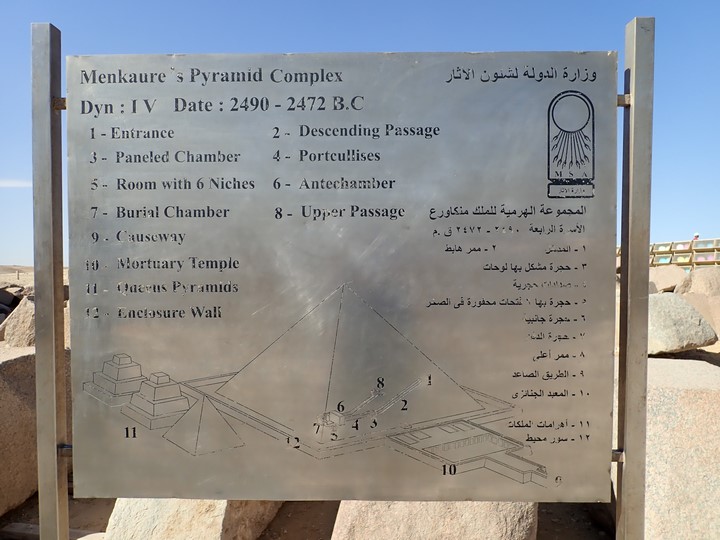 Menkaure's Pyramid Complex
Dyn : I V Date : 2490 - 2472 B.C
1 - Entrance 2 - Descending Passage
3 - Paneled Chamber 4 - Portcullises
5 - Room with 6 Niches 6 - Antechamber
7 - Burial Chamber 8 - Upper Passage
9 - Causeway
10 - Mortuary Temple
11 - Queens Pyramids
12 - Enclosure Wall
وزارة الدولة لشئون الاثار
M S A
وزارة الاثار
المجموعة الهرمية للملك منكاورع
الأسرة الرابعة ٢٤٩٠ - ٢٤٧٢ ق.م
١ - المدخل ٢ - ممر هابط
٣ - حجرة مشكل بها لوحات
حجرية
٥ - حجرة بها ٦ فتحات محفورة فى الصخر
٦ - حجرة جانبية
٧ - حجرة الدفن
٨ - ممر أعلى
٩ - الطريق الصاعد
١٠ - المعبد الجنائزى
١١ - أهرامات الملكات
١٢ - سور محيط
1
8
2
6
3
4
7
5
11
12
10
9